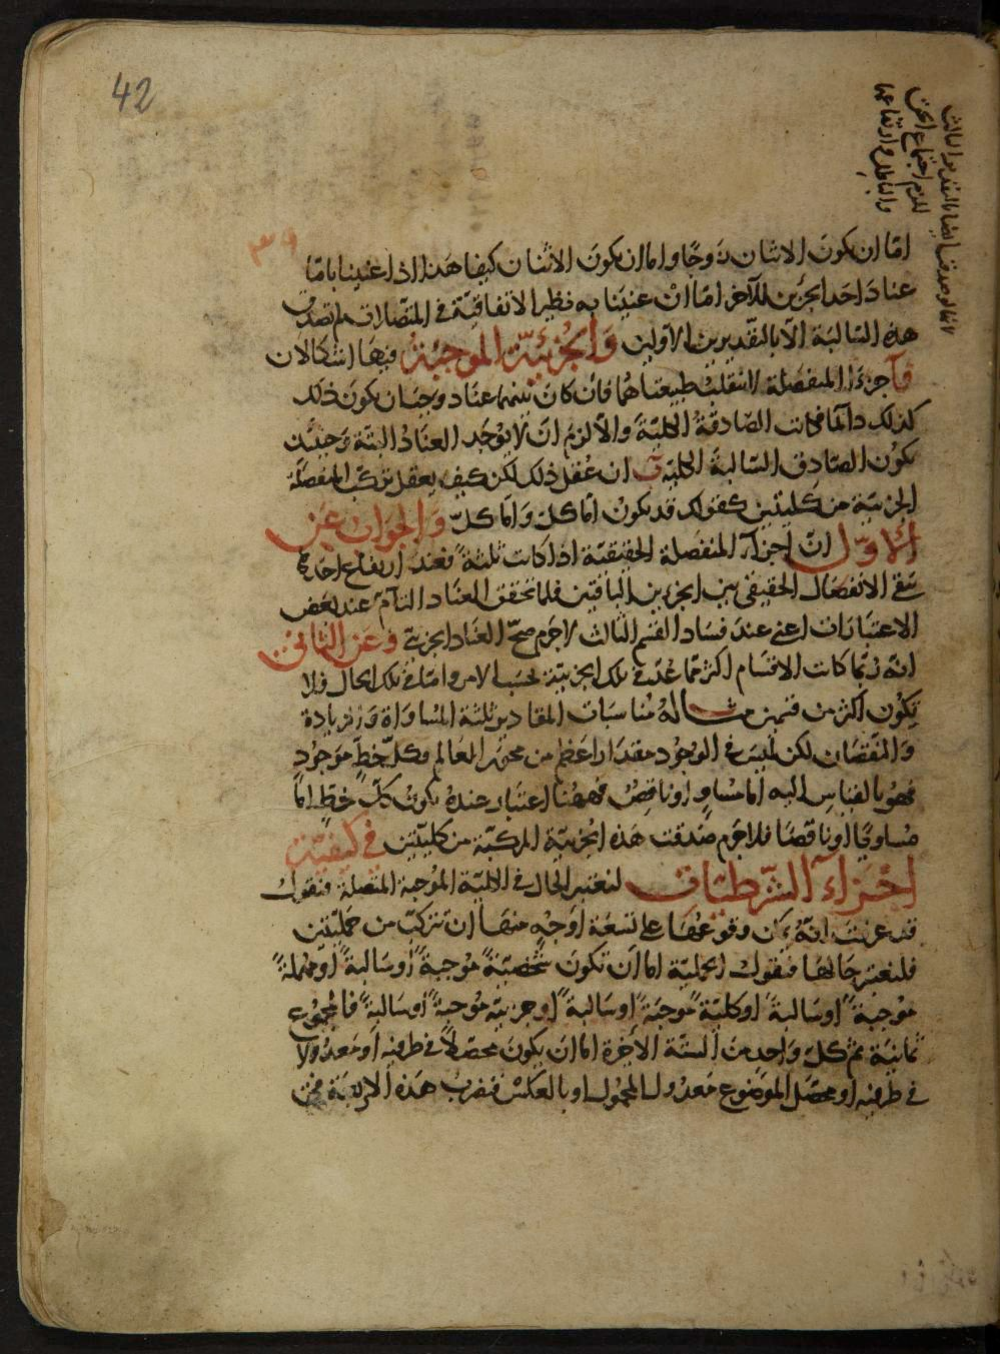 42
اما ان يكون الاثنان زوجا واما ان يكون الاثنان كيفا هذا اذا عنينا باما
عناد احد الجزئين للآخر امّا ان عنينا به نظير الاتفاقية في المتصلات لم تصدق
هذه السالبة الا بالتقديرين الاولين والجزئية الموجبة فيها اشكالان
آ جزءا المنفصلة لا تنقلب طبيعتاهما فان كان بينهما عناد وجب ان يكون ذلك
كذلك دائما فكانت الصادقة الكلية والا لزم ان لا يوجد العناد البتة وحينئذ
يكون الصادق السالبة الكلية ب ان عقل ذلك لكن كيف يعقل تركب المنفصلة
الجزئية من كليتين كقولك قد يكون اما كل واما كل والجواب عن
الاول ان اجزاء المنفصلة الحقيقية اذا كانت ثلثة فعند ارتفاع احدها
يبقى الانفصال الحقيقي بين الجزءين الباقيين فلما تحقق العناد التام عند بعض
الاعتبارات اعني عند فساد القسم الثالث لا جرم صح العناد الجزئي وعن الثاني
انه ربما كانت الاقسام اكثر مما عدت في تلك الجزئية بحسب الامر واما في تلك الحال فلا
يكون اكثر من قسمين مثاله مناسبات المقادير ثلثة المساواة والزيادة
والنقصان لكن ليس في الوجود مقدار اعظم من محور العالم وكل خط موجود
فهو بالقياس اليه اما مساو او ناقص فههنا اعتبار عنده يكون كل خط اما
مساويا او ناقصا فلا جرم صدقت هذه الجزئية المركبة من كليتين في كيفية
اجزاء الشرطيات لنعتبر الحال في الكلية الموجبة المتصلة فنقول
قد عرفت انه يمكن وقوعها على تسعة اوجه منها ان تتركب من حمليتين
فلنعتبر حالها فنقول الحملية اما ان تكون شخصية موجبة او سالبة او مهملة
موجبة او سالبة او كلية موجبة او سالبة او جزئية موجبة او سالبة فالمجموع
ثمانية ثم كل واحد من الستة الاخيرة اما ان يكون محصلا في طرفيه او معدولا
في طرفيه او محصل الموضوع معدول المحمول او بالعكس فنضرب هذه الاربعة في